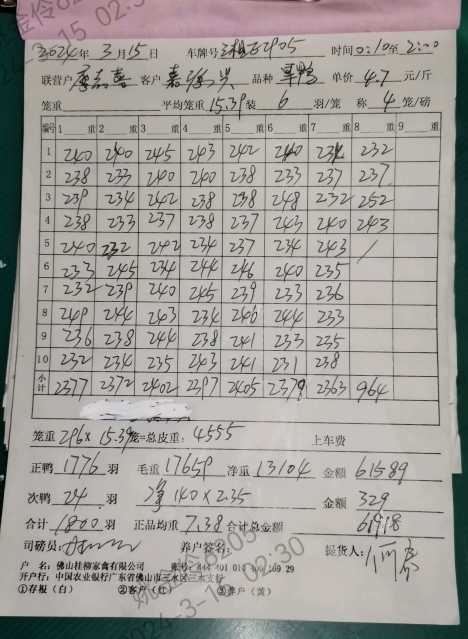 2024年 3月15日 车牌号 2P05 时间0:10至2:00
联营户 客户 品种 单价 4.7 元/斤
笼重 平均笼重15.39装 6 羽/笼 称 4 笼/磅
编号 1 重 2 重 3 重 4 重 5 重 6 重 7 重 8 重 9 重
1 240 240 245 243 242 240 234 232
2 238 233 240 240 238 233 237 237
3 239 234 242 238 238 248 232 252
4 238 233 237 238 237 243 240 243
5 240 232 242 234 237 234 243 /
6 233 245 234 244 246 240 235
7 232 239 240 245 239 233 236
8 249 244 243 234 240 244 233
9 236 238 244 238 241 233 235
10 232 234 235 243 241 231 238
小计 2377 2372 2402 2397 2405 2379 2363 964
笼重 296× 15.39笼=总皮重: 4555 上车费
正鸭 1776 羽 毛重 17659 净重 13104 金额 61589
次鸭 24 羽 净 140×2.35 金额 329
合计 1800 羽 正品均重 7.38 合计总金额 61918
司磅员: 养户签名: 提货人:
户 名: 佛山桂柳家禽有限公司 账号:
开户行: 中国农业银行广东省佛山市三水区三水支行
①存根（白） ②客户（红） ③养户（黄）
2024-3-15 02:30